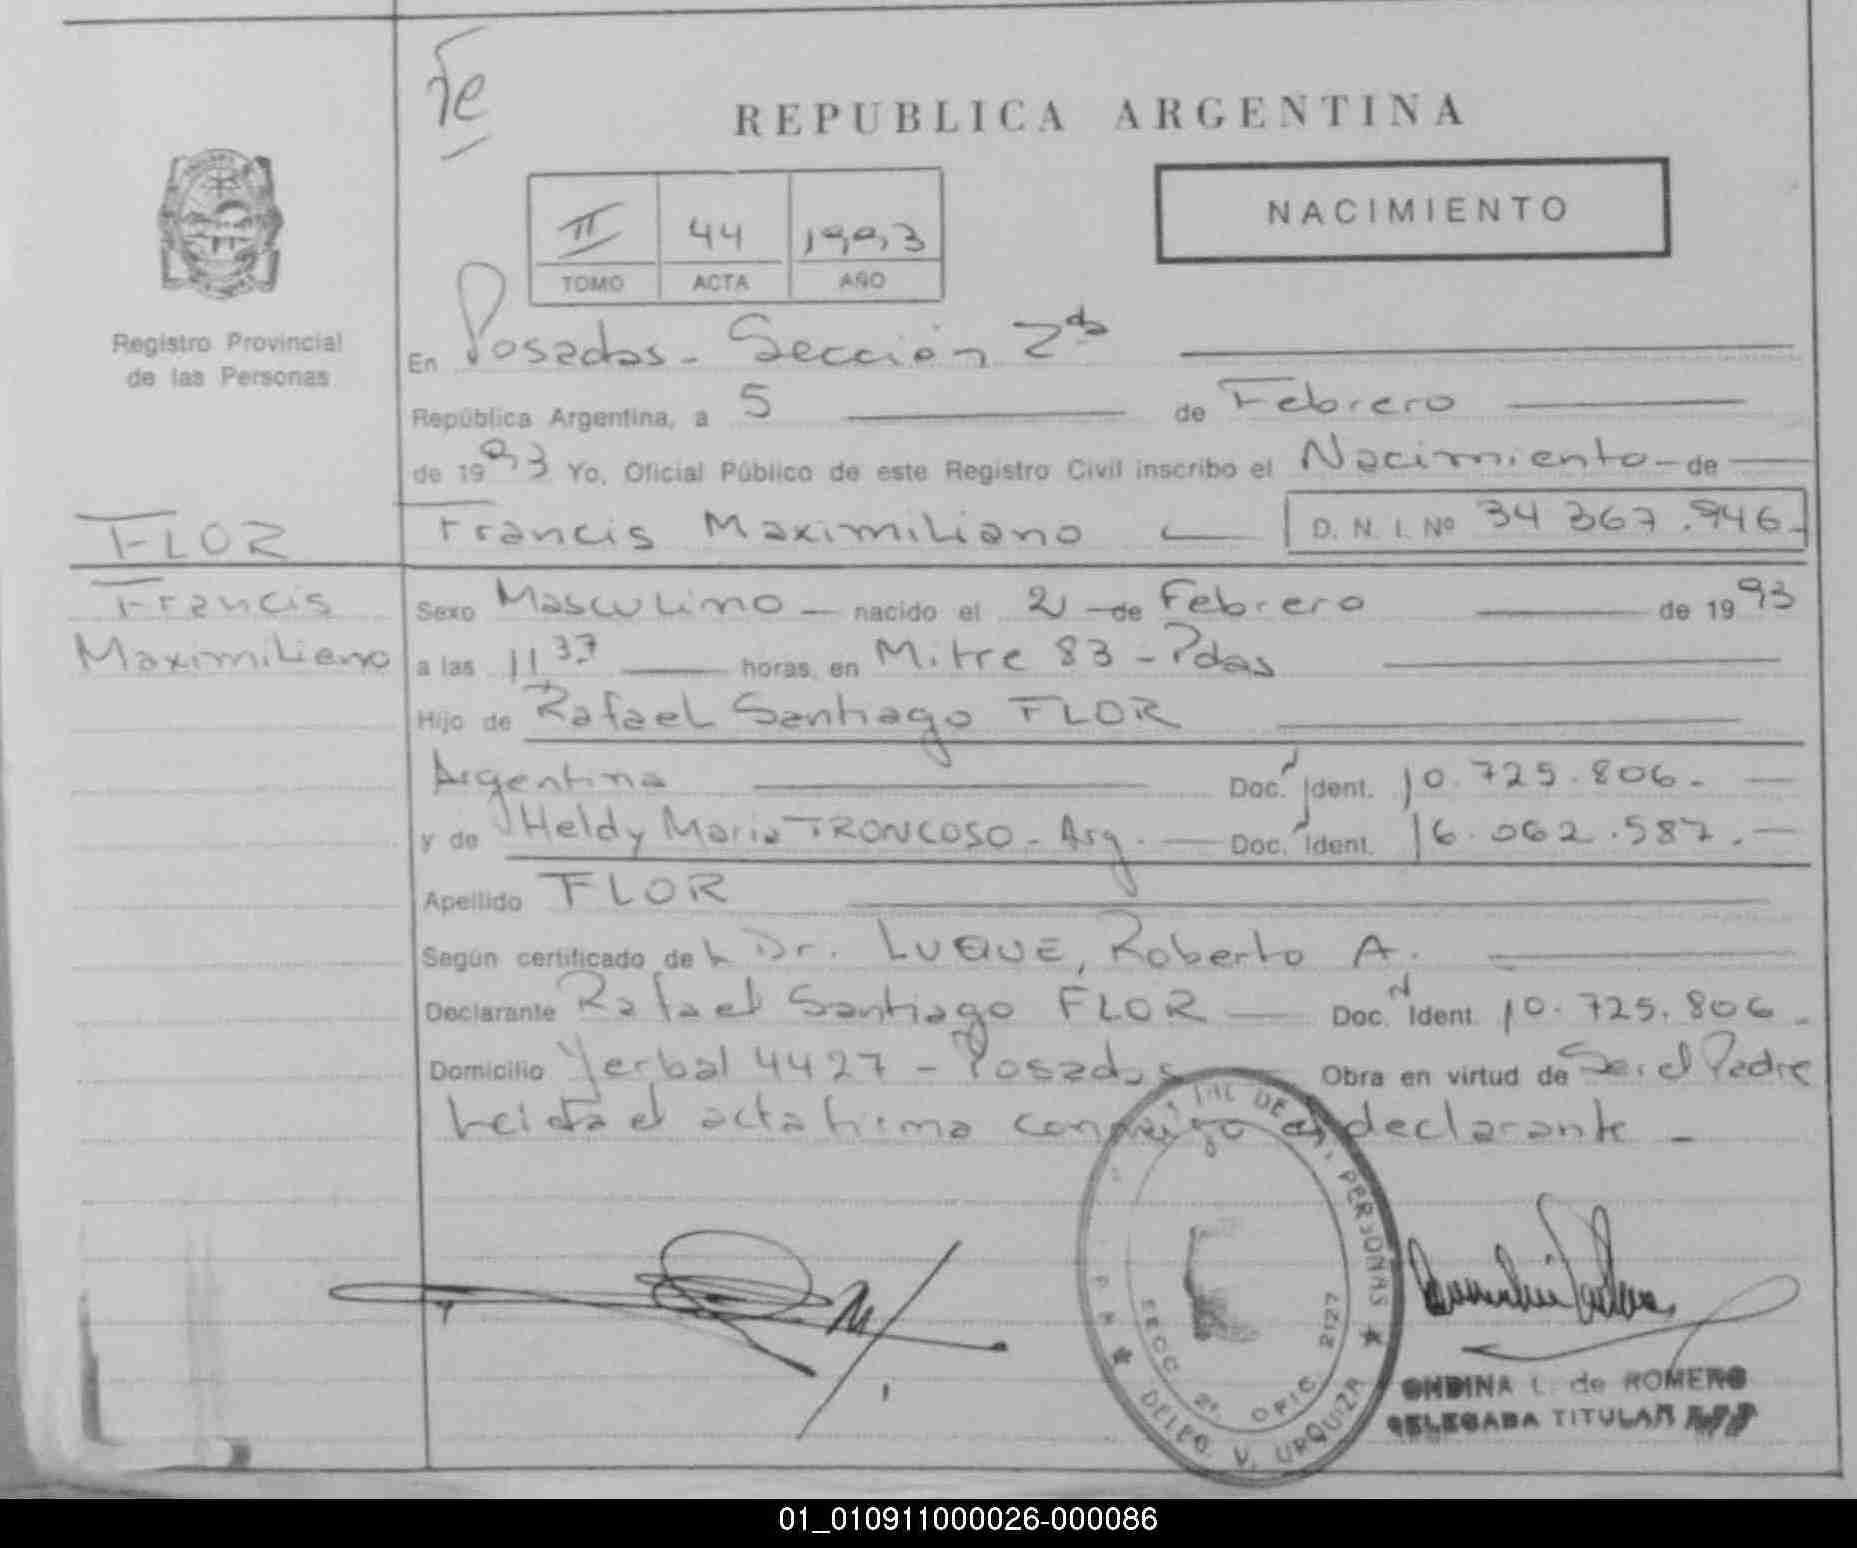 REPUBLICA ARGENTINA
NACIMIENTO
II 44 1993
TOMO ACTA AÑO
Registro Provincial
de las Personas
En Posadas - Sección 2da
República Argentina, a 5 de Febrero
de 1993 Yo, Oficial Público de este Registro Civil inscribo el Nacimiento de
FLOR
Francis Maximiliano D. N. I. Nº 34 367.946-
Francis
Maximiliano
Sexo Masculino - nacido el 2 de Febrero de 1993
a las 11 37 horas, en Mitre 83 - Pdas
Hijo de Rafael Santiago FLOR
Argentina Doc. Ident. 10.725.806.-
y de Heldy Maria TRONCOSO - Arg. Doc. Ident. 16.062.587.-
Apellido FLOR
Según certificado de Dr. LUQUE, Roberto A.
Declarante Rafael Santiago FLOR Doc. Ident. 10.725.806.-
Domicilio Yerbal 4427 - Posadas Obra en virtud de Ser el Padre
Leida el acta firma conmigo el declarante -
DE PERSONAS
SECC. 2ª OFIC. 2127
DELEG. V. URQUIZA
ONDINA L. de ROMERO
DELEGADA TITULAR
01_010911000026-000086